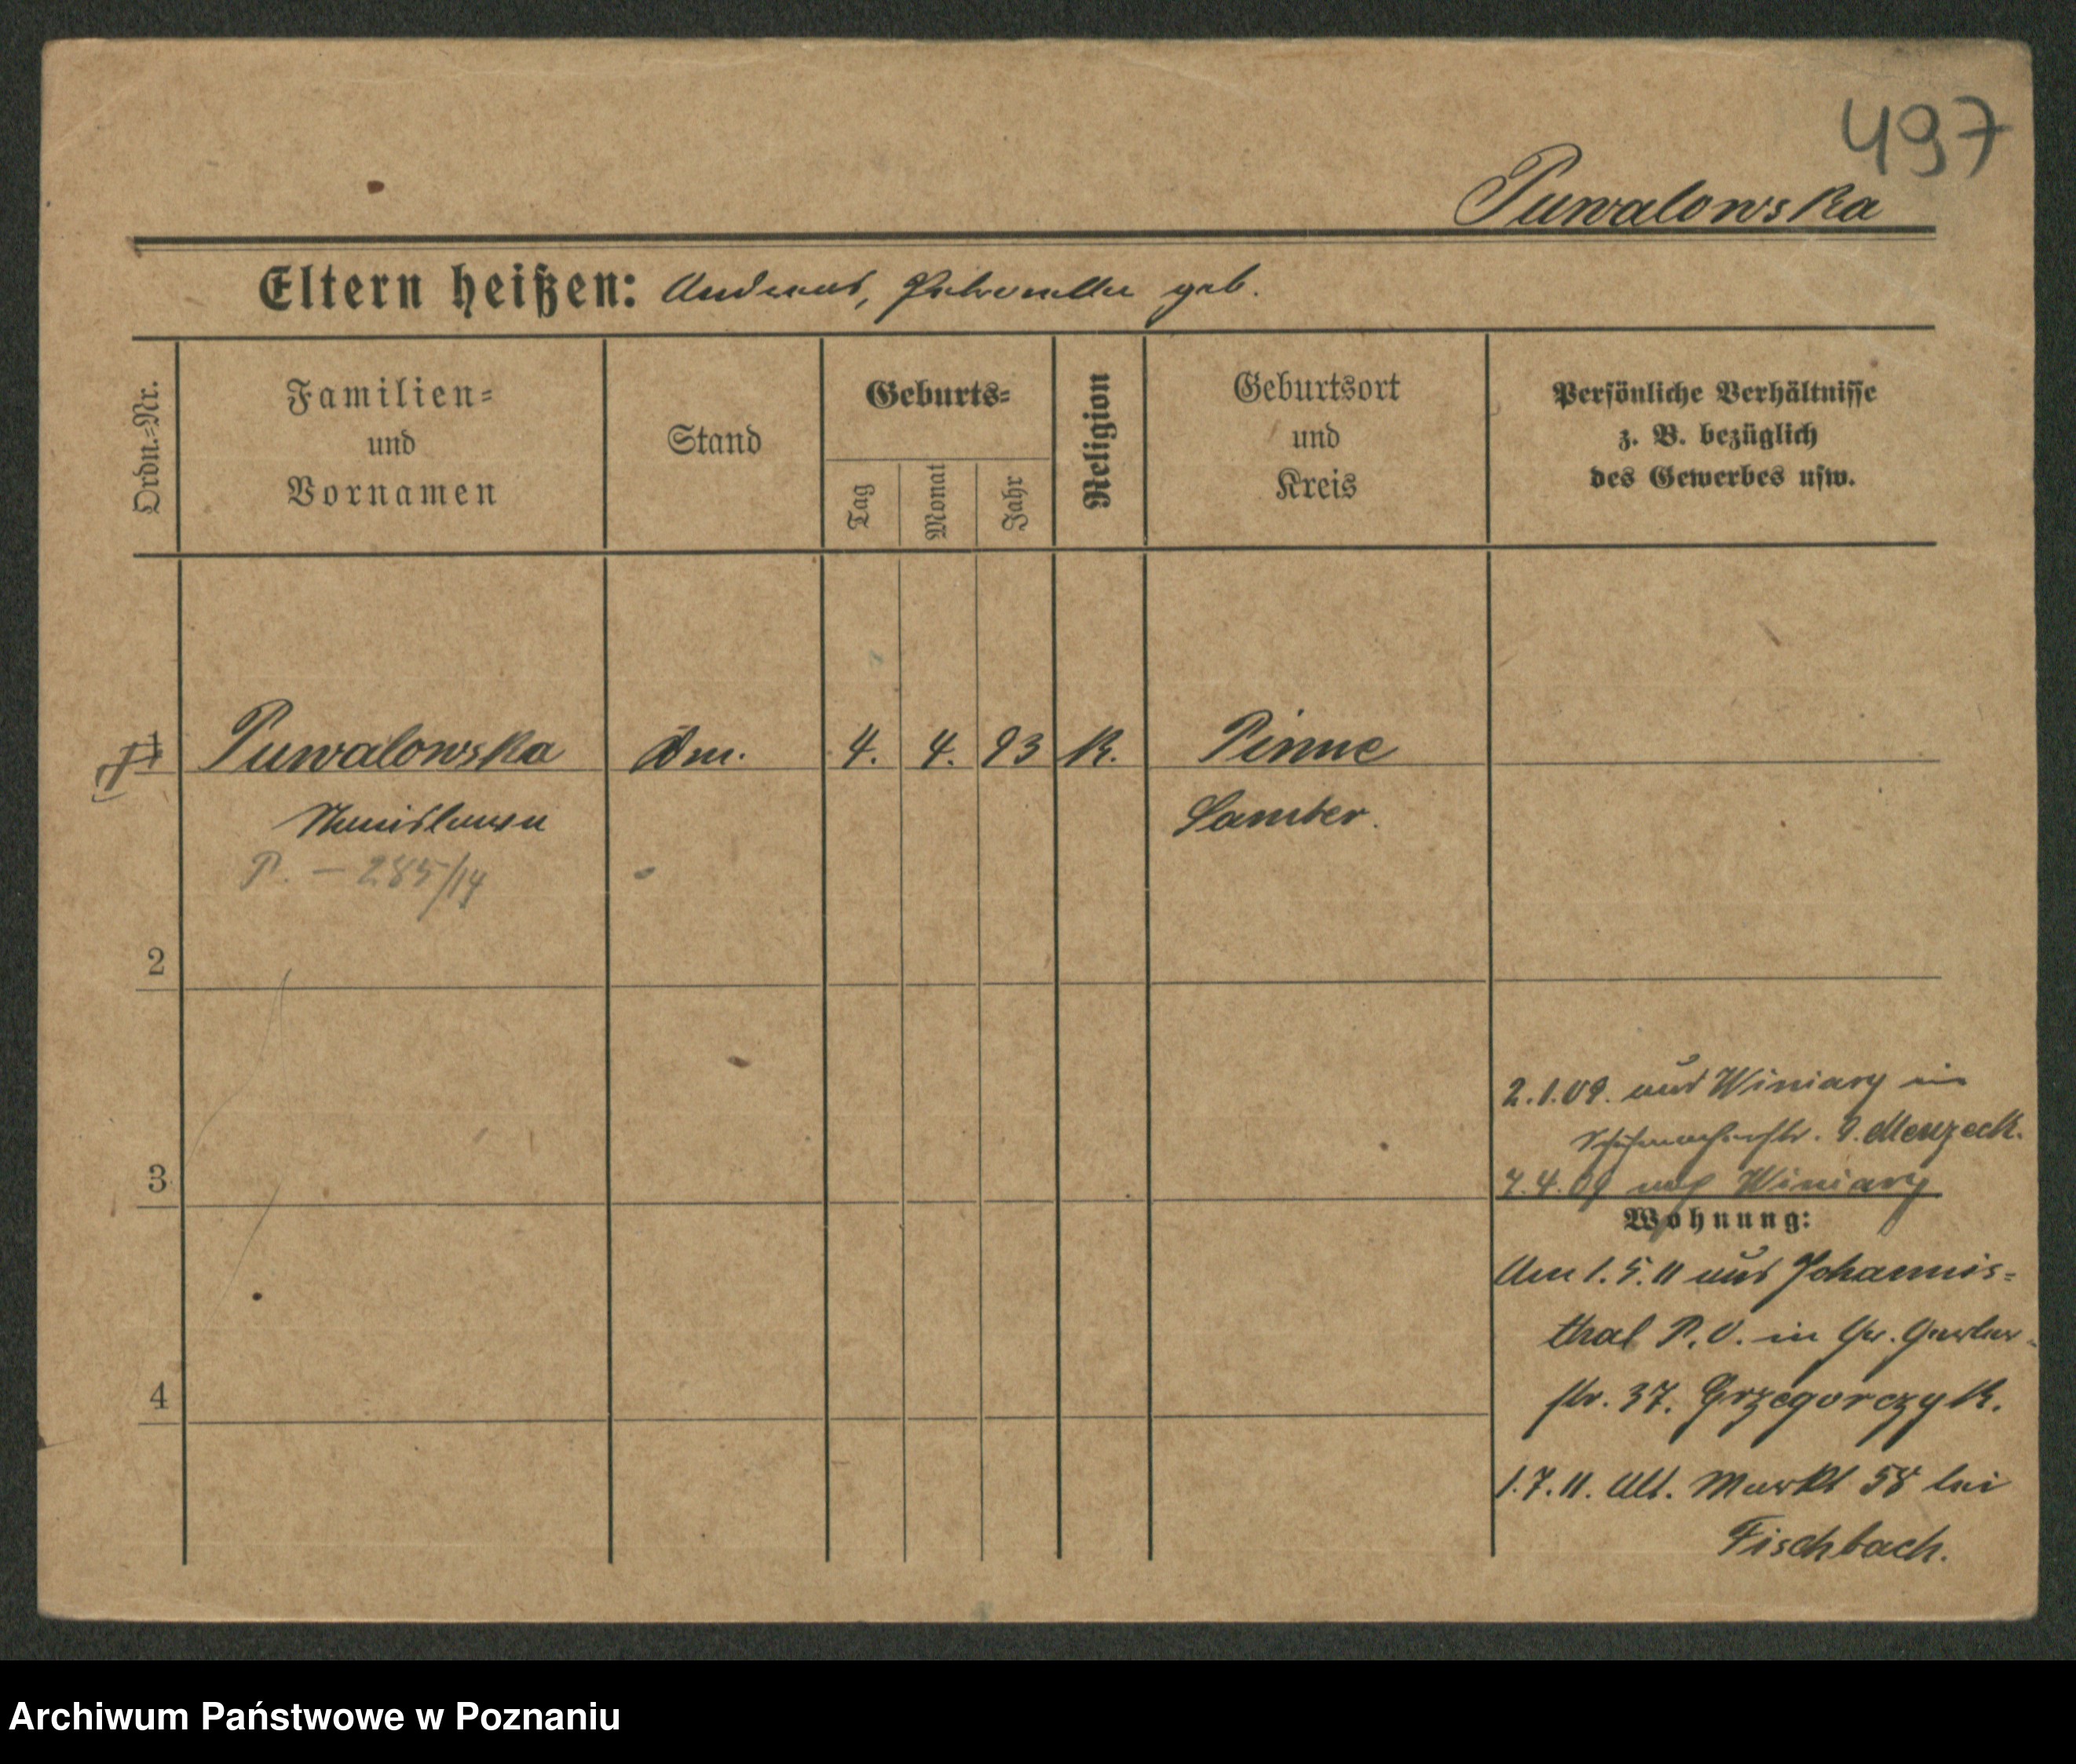 497
Puwalowska
Eltern heißen: Andreas, Petronella geb.
Ordn.=Nr.
Familien=
und
Vornamen
Stand
Geburts=
Tag
Monat
Jahr
Religion
Geburtsort
und
Kreis
Persönliche Verhältnisse
z. B. bezüglich
des Gewerbes usw.
1 Puwalowska Dm. 4. 4. 93 K. Pinne
Stanislawa Samter.
P. — 285/14
2
2.1.09. aus Winiary in
Schuhmacherstr. 9. Menzeck.
3
7.4.09 nach Winiary
Wohnung:
Am 1.5.11 aus Johannis=
thal P.O. in Gr. Gerber=
4
str. 37. Grzegorczyk.
1.7.11. Alt. Markt 58 bei
Fischbach.
Archiwum Państwowe w Poznaniu